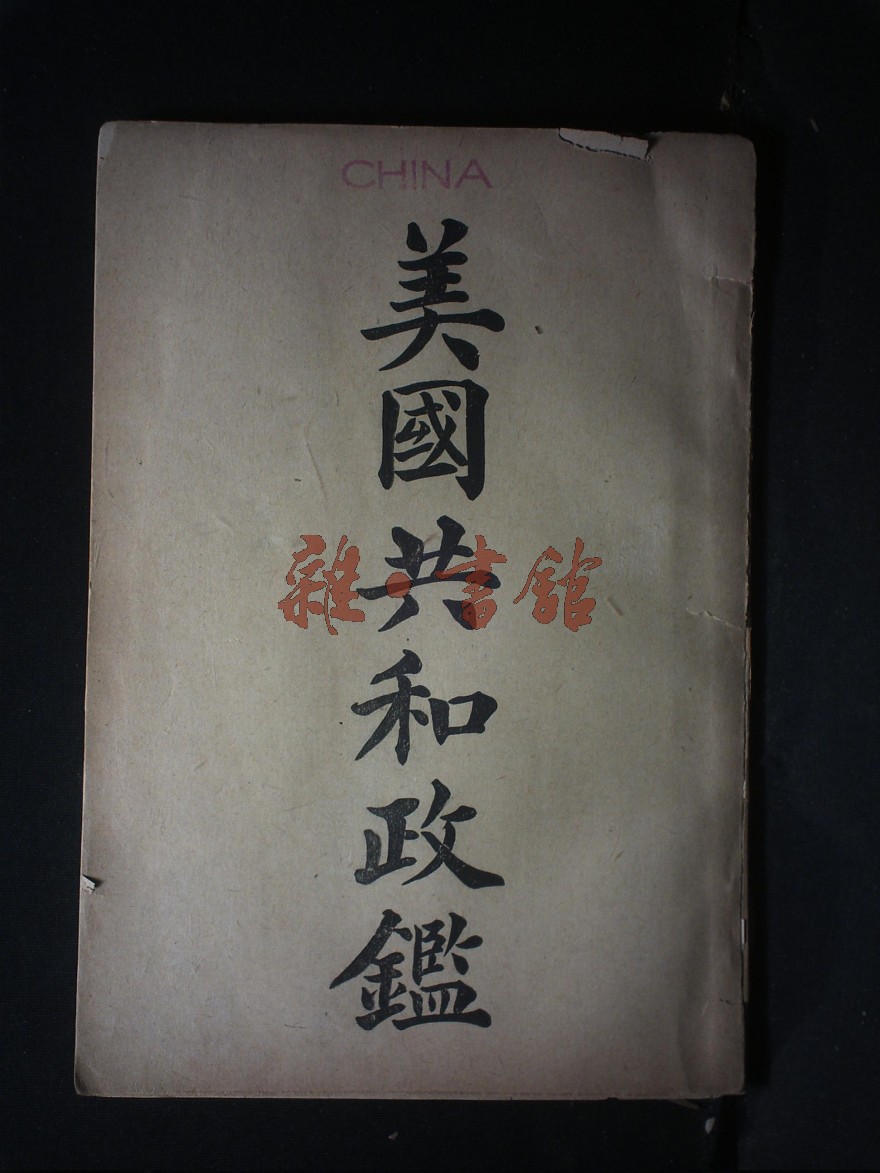 CHINA
美國共和政鑑
雜·書館